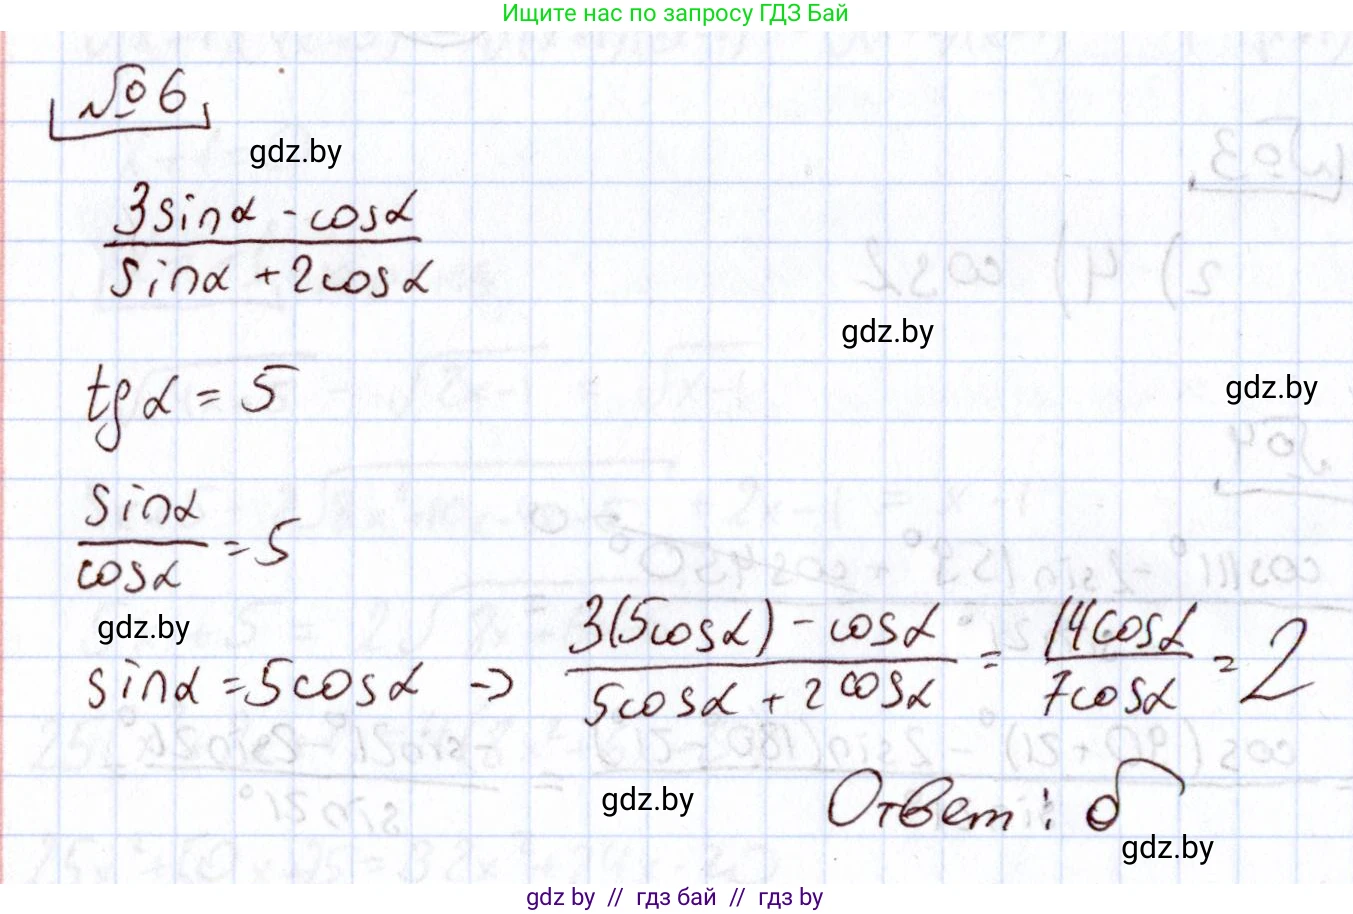 Ищите нас по запросу ГДЗ Бай
№ 6
gdz.by
3sinα - cosα
sinα + 2cosα
gdz.by
tgα = 5
gdz.by
sinα
cosα = 5
gdz.by
sinα = 5cosα → 3(5cosα) - cosα / 5cosα + 2cosα = 14cosα / 7cosα = 2
gdz.by
Ответ: б
gdz.by
gdz.by // гдз бай // gdz.by